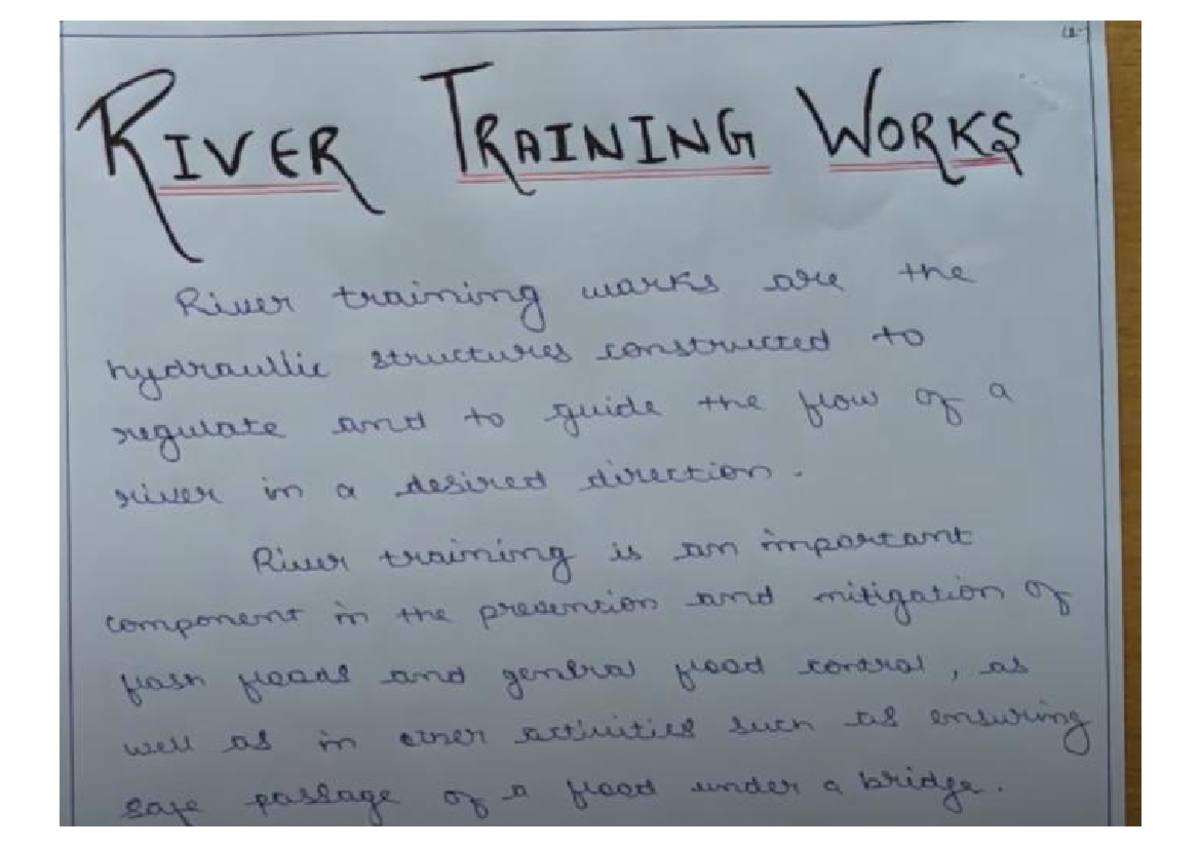 RIVER TRAINING WORKS
River training works are the
hydraullic structures constructed to
regulate and to guide the flow of a
river in a desired direction.
River training is an important
component in the prevention and mitigation of
flash floods and general flood control, as
well as in other activities such as ensuring
safe passage of a flood under a bridge.